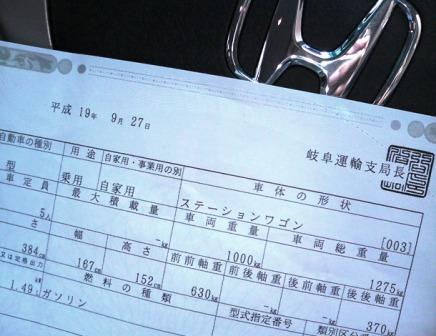 平成 19年 9月 27日
岐阜運輸支局長
自動車の種別 用途 自家用・事業用の別 車体の形状
型 乗用 自家用 ステーションワゴン [003]
車定員 最大積載量 車両重量 車両総重量
5人 -kg 1000kg 1275kg
幅 高さ 前前軸重 前後軸重 後前軸重 後後軸重
384cm 167cm 152cm 630kg -kg -kg 370kg
又は定格出力 燃料の種類 型式指定番号 類別区分
1.49 ガソリン